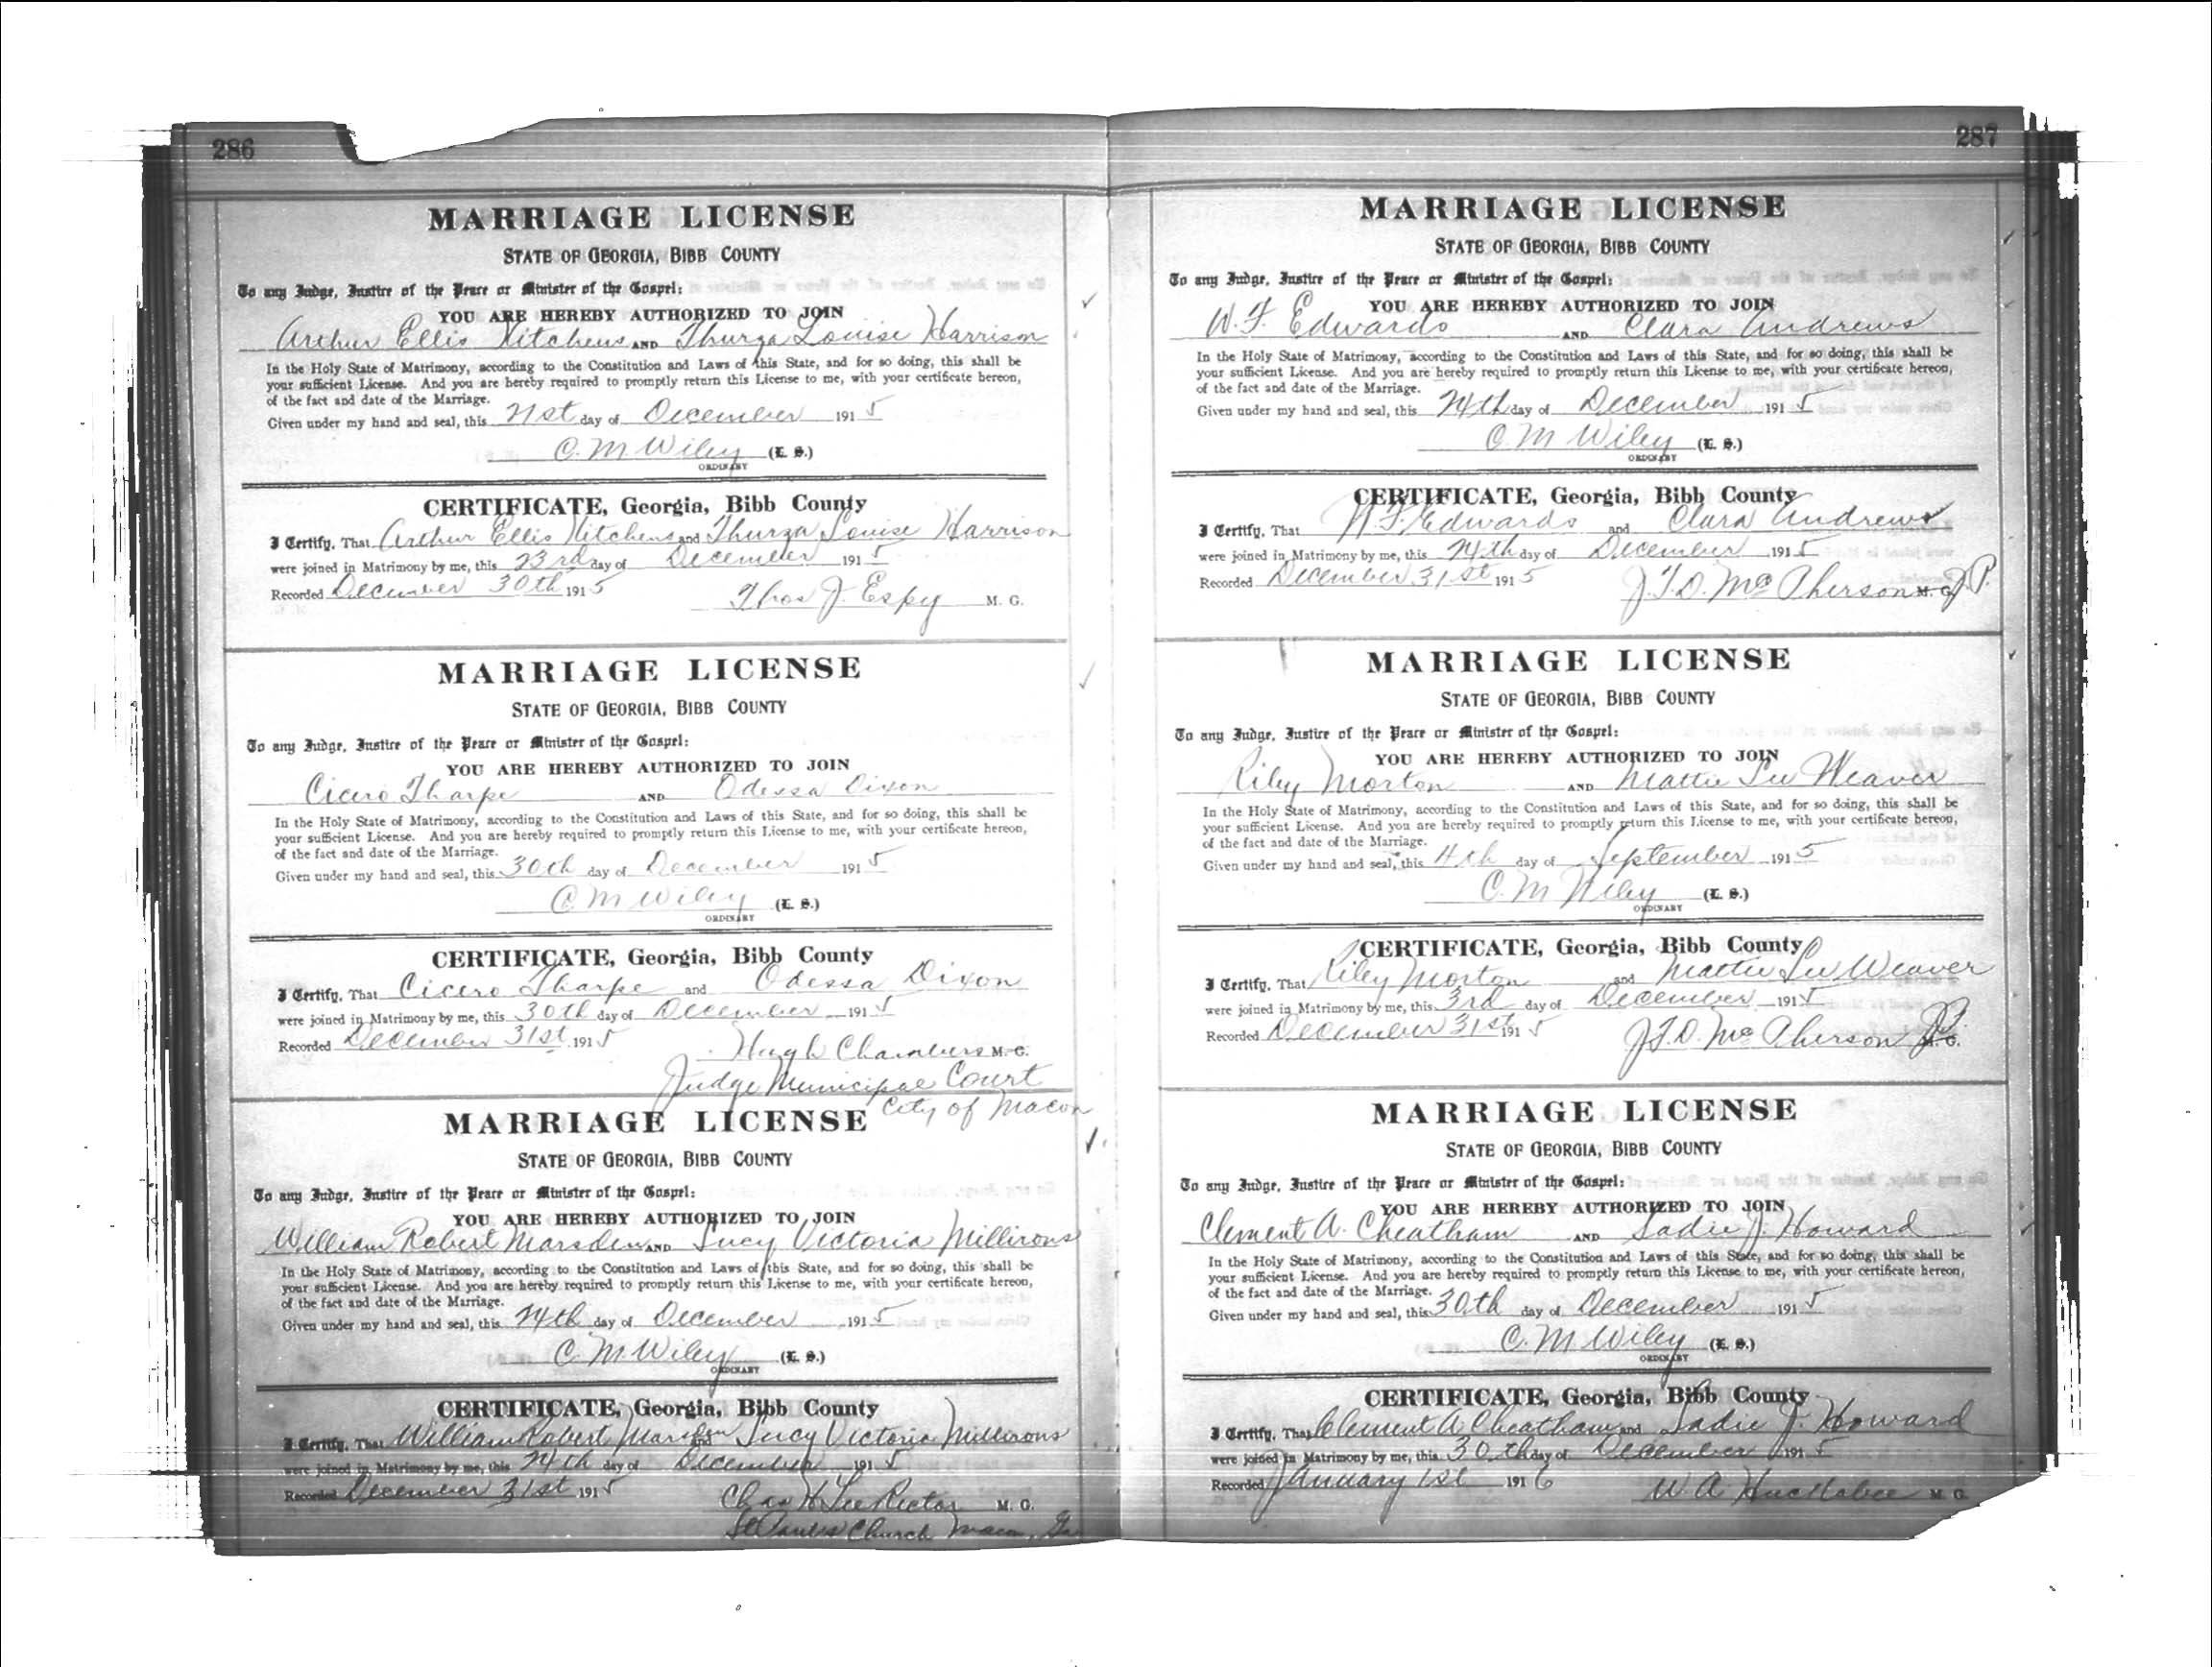 286
MARRIAGE LICENSE
STATE OF GEORGIA, BIBB COUNTY
To any Judge, Justice of the Peace or Minister of the Gospel:
YOU ARE HEREBY AUTHORIZED TO JOIN
Arthur Ellis Kitchens AND Thurza Louise Harrison
In the Holy State of Matrimony, according to the Constitution and Laws of this State, and for so doing, this shall be
your sufficient License. And you are hereby required to promptly return this License to me, with your certificate hereon,
of the fact and date of the Marriage.
Given under my hand and seal, this 21st day of December 1915
C. M Wiley (L. S.)
ORDINARY
CERTIFICATE, Georgia, Bibb County
I Certify, That Arthur Ellis Kitchens and Thurza Louise Harrison
were joined in Matrimony by me, this 23rd day of December 1915
Recorded December 30th 1915 Thos J. Espy M. G.
MARRIAGE LICENSE
STATE OF GEORGIA, BIBB COUNTY
To any Judge, Justice of the Peace or Minister of the Gospel:
YOU ARE HEREBY AUTHORIZED TO JOIN
Cicero Tharpe AND Odessa Dixon
In the Holy State of Matrimony, according to the Constitution and Laws of this State, and for so doing, this shall be
your sufficient License. And you are hereby required to promptly return this License to me, with your certificate hereon,
of the fact and date of the Marriage.
Given under my hand and seal, this 30th day of December 1915
C M Wiley (L. S.)
ORDINARY
CERTIFICATE, Georgia, Bibb County
I Certify, That Cicero Tharpe and Odessa Dixon
were joined in Matrimony by me, this 30th day of December 1915
Recorded December 31st 1915 Hugh Chambers M. G.
Judge Municipal Court
City of Macon
MARRIAGE LICENSE
STATE OF GEORGIA, BIBB COUNTY
To any Judge, Justice of the Peace or Minister of the Gospel:
YOU ARE HEREBY AUTHORIZED TO JOIN
William Robert Marsden AND Lucy Victoria Millirons
In the Holy State of Matrimony, according to the Constitution and Laws of this State, and for so doing, this shall be
your sufficient License. And you are hereby required to promptly return this License to me, with your certificate hereon,
of the fact and date of the Marriage.
Given under my hand and seal, this 24th day of December 1915
C. M Wiley (L. S.)
ORDINARY
CERTIFICATE, Georgia, Bibb County
I Certify, That William Robert Marsden and Lucy Victoria Millirons
were joined in Matrimony by me, this 24th day of December 1915
Recorded December 31st 1915 Chas H. Lee Rector M. G.
St Pauls Church Macon, Ga
287
MARRIAGE LICENSE
STATE OF GEORGIA, BIBB COUNTY
To any Judge, Justice of the Peace or Minister of the Gospel:
YOU ARE HEREBY AUTHORIZED TO JOIN
W. F. Edwards AND Clara Andrews
In the Holy State of Matrimony, according to the Constitution and Laws of this State, and for so doing, this shall be
your sufficient License. And you are hereby required to promptly return this License to me, with your certificate hereon,
of the fact and date of the Marriage.
Given under my hand and seal, this 24th day of December 1915
C. M Wiley (L. S.)
ORDINARY
CERTIFICATE, Georgia, Bibb County
I Certify, That W. F. Edwards and Clara Andrews
were joined in Matrimony by me, this 24th day of December 1915
Recorded December 31st 1915 J. T. D. McPherson M. G. J.P.
MARRIAGE LICENSE
STATE OF GEORGIA, BIBB COUNTY
To any Judge, Justice of the Peace or Minister of the Gospel:
YOU ARE HEREBY AUTHORIZED TO JOIN
Riley Morton AND Mattie Lee Weaver
In the Holy State of Matrimony, according to the Constitution and Laws of this State, and for so doing, this shall be
your sufficient License. And you are hereby required to promptly return this License to me, with your certificate hereon,
of the fact and date of the Marriage.
Given under my hand and seal, this 4th day of September 1915
C. M Wiley (L. S.)
ORDINARY
CERTIFICATE, Georgia, Bibb County
I Certify, That Riley Morton and Mattie Lee Weaver
were joined in Matrimony by me, this 3rd day of December 1915
Recorded December 31st 1915 J. T. D. McPherson J.P. M. G.
MARRIAGE LICENSE
STATE OF GEORGIA, BIBB COUNTY
To any Judge, Justice of the Peace or Minister of the Gospel:
YOU ARE HEREBY AUTHORIZED TO JOIN
Clement A. Cheatham AND Sadie J. Howard
In the Holy State of Matrimony, according to the Constitution and Laws of this State, and for so doing, this shall be
your sufficient License. And you are hereby required to promptly return this License to me, with your certificate hereon,
of the fact and date of the Marriage.
Given under my hand and seal, this 30th day of December 1915
C. M Wiley (L. S.)
ORDINARY
CERTIFICATE, Georgia, Bibb County
I Certify, That Clement A Cheatham and Sadie J. Howard
were joined in Matrimony by me, this 30th day of December 1915
Recorded January 1st 1916 W. A. Huckabee M. G.